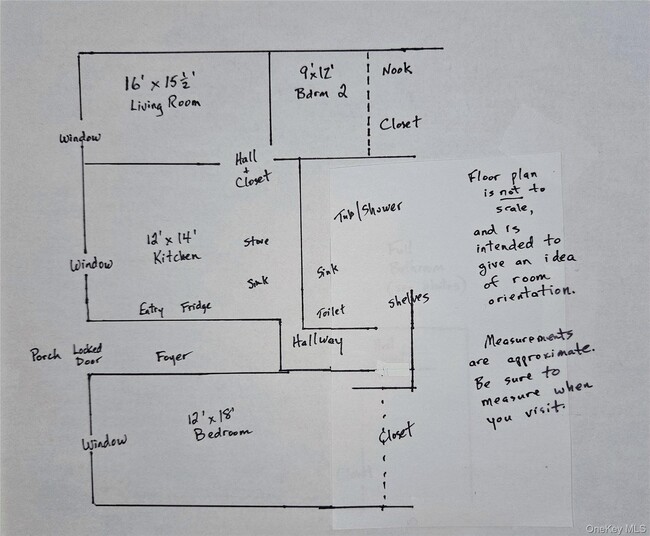 16' x 15 ½'
Living Room
9'x12'
Bdrm 2
Nook
Closet
Window
Hall
+
Closet
Tub/Shower
12' x 14'
Kitchen
Stove
Sink
Sink
Toilet
Shelves
Window
Entry Fridge
Hallway
Porch
Locked
Door
Foyer
12' x 18'
Bedroom
Window
Closet
Floor plan
is not to
scale,
and is
intended to
give an idea
of room
orientation.
Measurements
are approximate.
Be sure to
measure when
you visit.
OneKey MLS